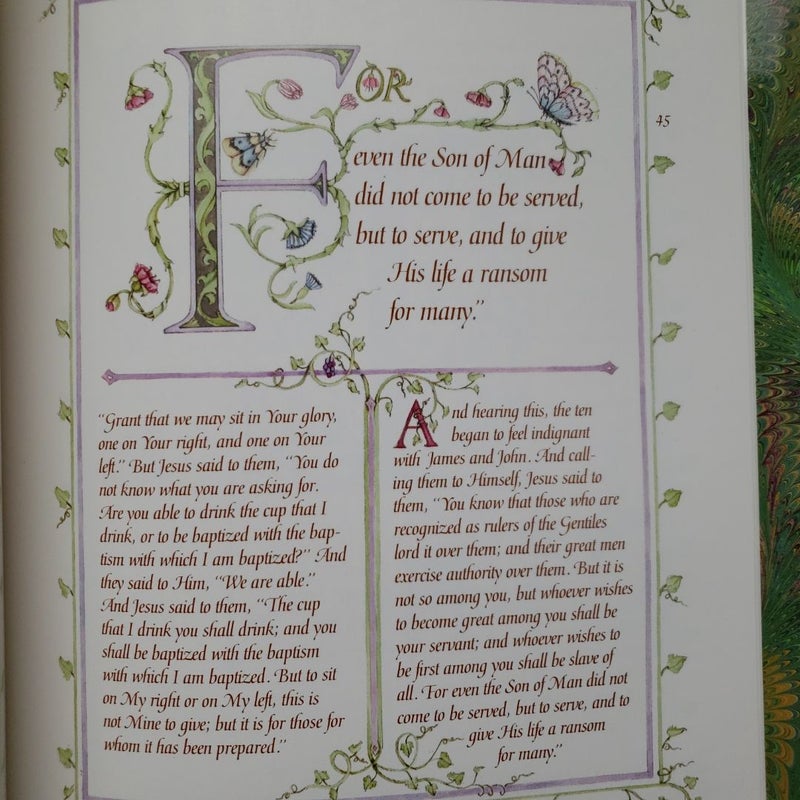 FOR
45
even the Son of Man
did not come to be served,
but to serve, and to give
His life a ransom
for many.”
“Grant that we may sit in Your glory,
one on Your right, and one on Your
left.” But Jesus said to them, “You do
not know what you are asking for.
Are you able to drink the cup that I
drink, or to be baptized with the bap-
tism with which I am baptized?” And
they said to Him, “We are able.”
And Jesus said to them, “The cup
that I drink you shall drink; and you
shall be baptized with the baptism
with which I am baptized. But to sit
on My right or on My left, this is
not Mine to give; but it is for those for
whom it has been prepared.”
And hearing this, the ten
began to feel indignant
with James and John. And call-
ing them to Himself, Jesus said to
them, “You know that those who are
recognized as rulers of the Gentiles
lord it over them; and their great men
exercise authority over them. But it is
not so among you, but whoever wishes
to become great among you shall be
your servant; and whoever wishes to
be first among you shall be slave of
all. For even the Son of Man did not
come to be served, but to serve, and to
give His life a ransom
for many.”